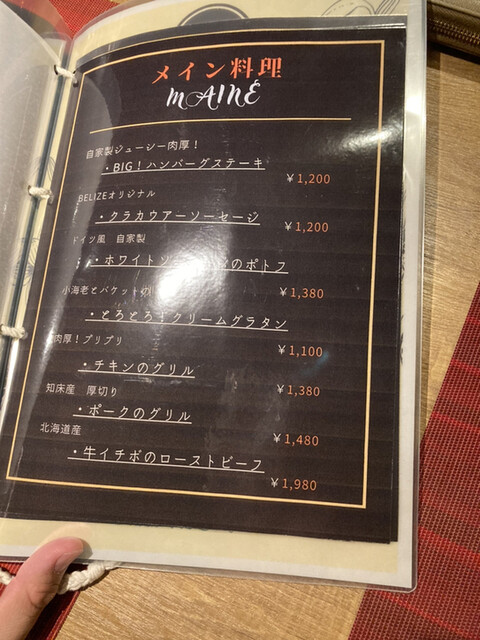 メイン料理
MAINE
自家製ジューシー肉厚！
・BIG！ハンバーグステーキ
￥1,200
BELIZEオリジナル
・クラカウアーソーセージ
￥1,200
ドイツ風 自家製
・ホワイトソ のポトフ
￥1,380
小海老とバケット
・とろとろ クリームグラタン
￥1,100
肉厚！プリプリ
・チキンのグリル
￥1,380
知床産 厚切り
・ポークのグリル
￥1,480
北海道産
・牛イチボのローストビーフ
￥1,980